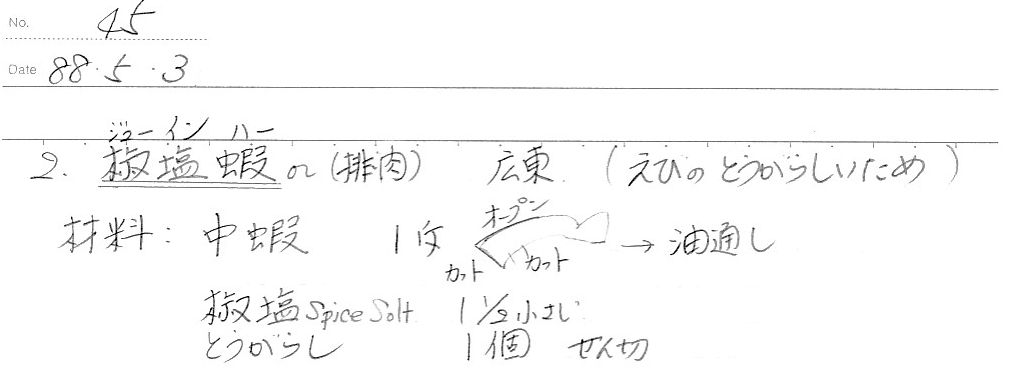 No. 45
Date 88・5・3
ジューイン ハー
2. 椒塩蝦 or (排肉) 広東 (えびのとうがらしいため)
材料: 中蝦 1斤 オープン カット カット → 油通し
椒塩 Spice Solt 1 1/2 小さじ
とうがらし 1個 せん切